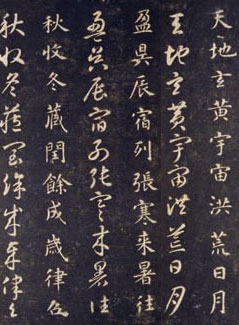 天地玄黃宇宙洪荒日月
天地玄黃宇宙洪荒日月
盈昃辰宿列張寒來暑往
盈昃辰宿列張寒來暑往
秋收冬藏閏餘成歲律召
秋收冬藏閏餘成歲律召